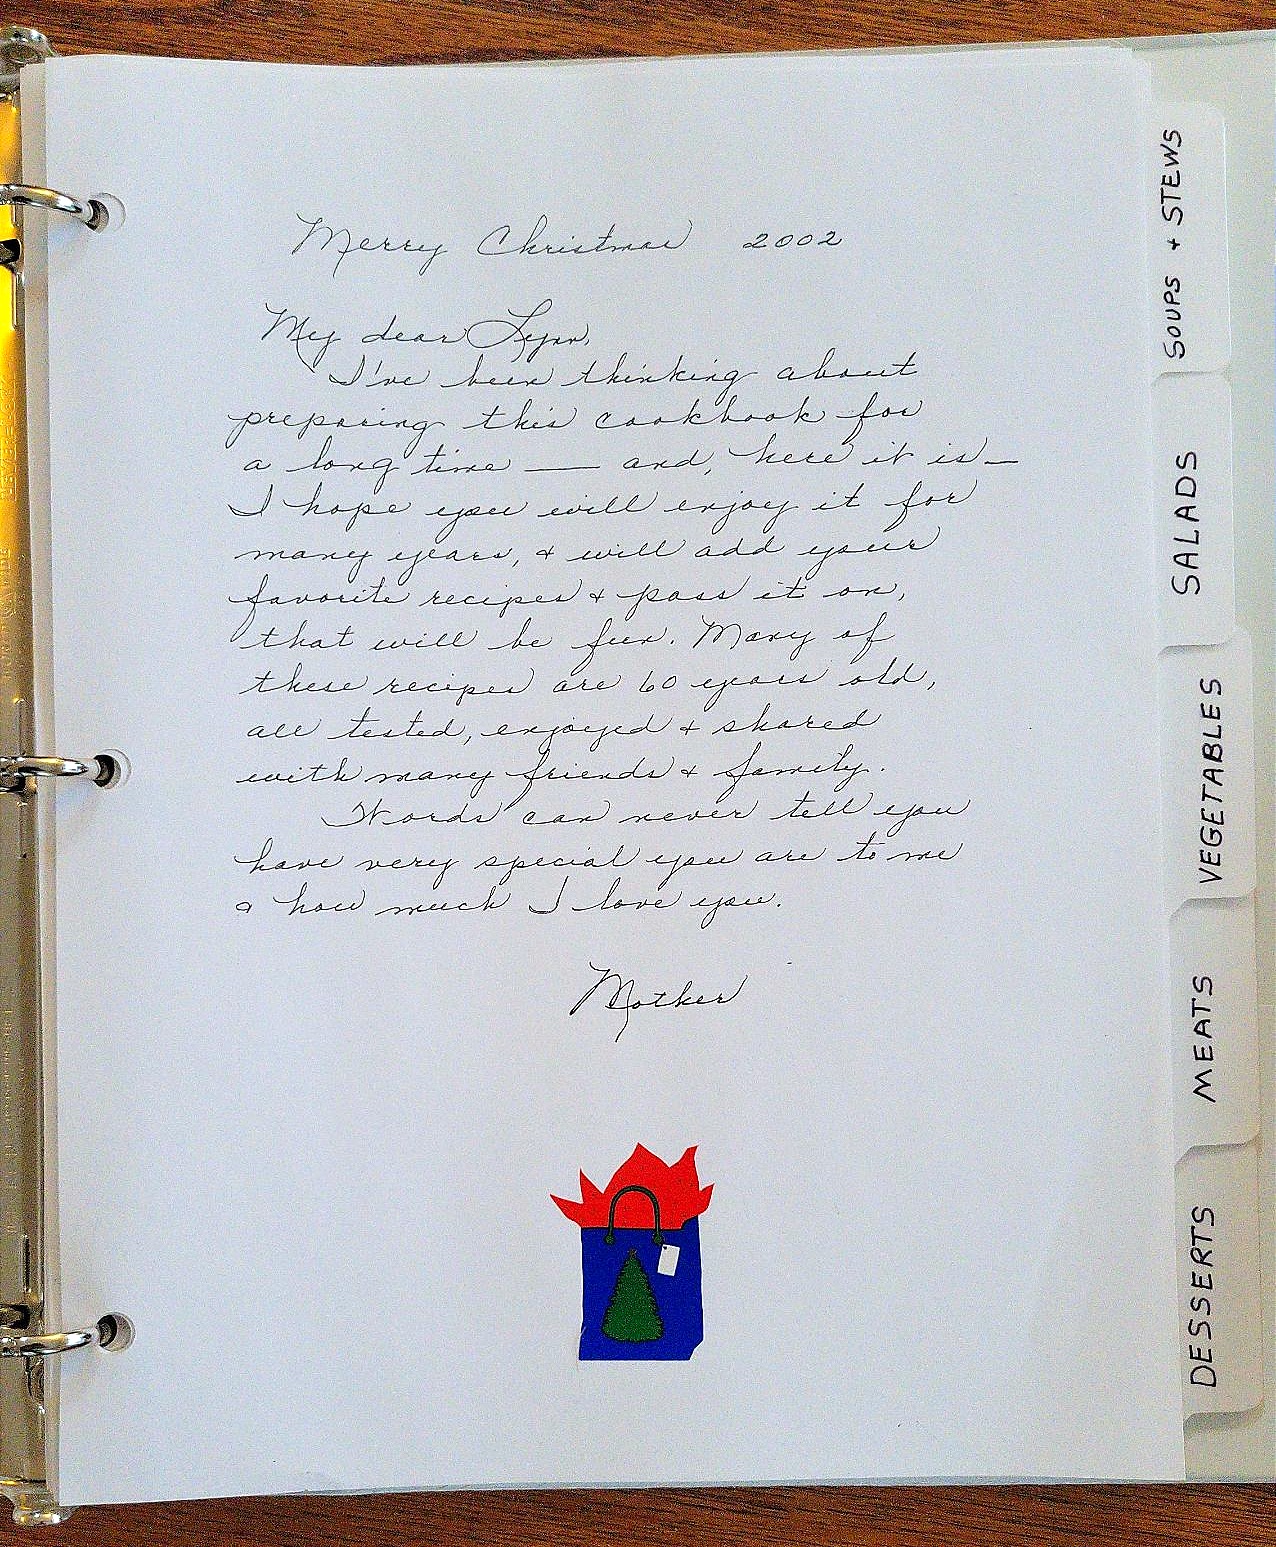 Merry Christmas 2002
My dear Lynn,
I've been thinking about
preparing this cookbook for
a long time — and, here it is —
I hope you will enjoy it for
many years, + will add your
favorite recipes + pass it on,
that will be fun. Many of
these recipes are 60 years old,
all tested, enjoyed + shared
with many friends + family.
Words can never tell you
have very special you are to me
& how much I love you.
Mother
SOUPS + STEWS
SALADS
VEGETABLES
MEATS
DESSERTS